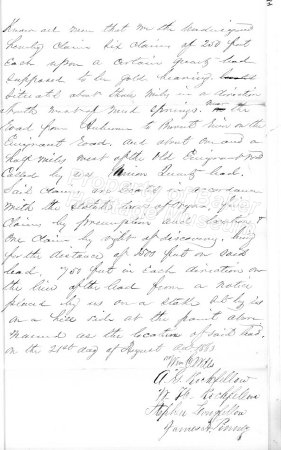 Know all men that we the undersigned
hereby claim six claims of 250 feet
each upon a certain quartz lead
supposed to be gold bearing
situated about three miles in a direction
South west of Mud Springs near the
road from Auburn to on the
Emigrant Road, and about one and a
half miles west of the Old Emigrant Road
called by us Union Quartz lead.
Said claims are located in accordance
with the statute laws of
claims by preemption and location &
one claim by right of discovery, being
for the distance of 1500 feet on said
lead. 750 feet in each direction on
the line of the lead from a notice
placed by us on a stake set by us
on a hill side at the point above
named as the location of said lead.
on the 21st day of August
Wm
A. G. Rockfellow
W. H. Rockfellow
Stephen
James